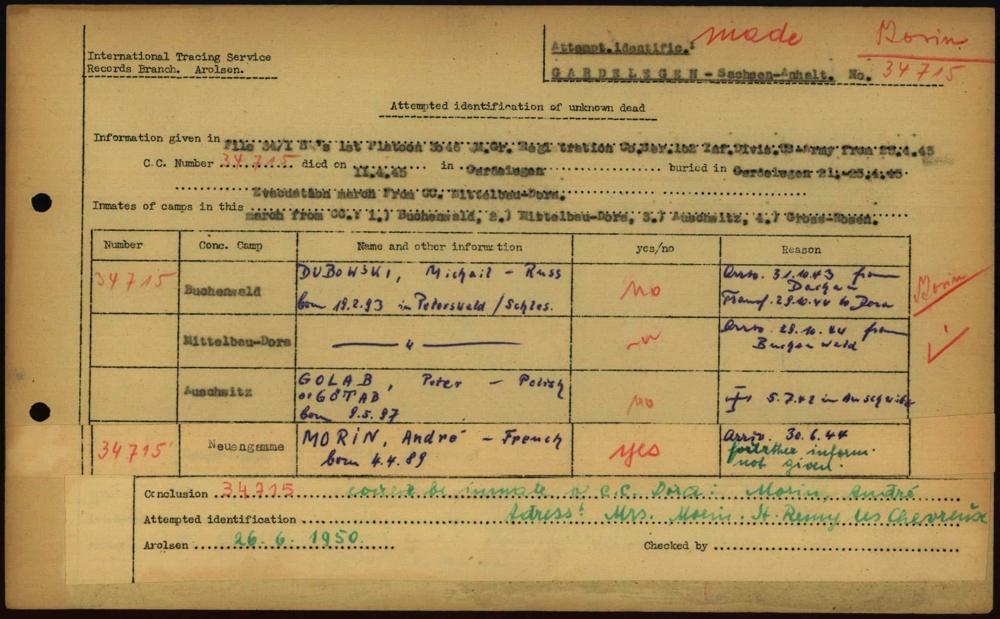 International Tracing Service
Records Branch. Arolsen.
Attempt.identific.: made Morin
GARDELEGEN - Sachsen-Anhalt. No. 34715
Attempted identification of unknown dead
Information given in File 54/I 1st Platoon 3048 Registration Co. Inf.Divis. US-Army from
C.C. Number 34715 died on 11.4.45 in Gardelegen buried in Gardelegen 21.-23.4.45.
Evacuation march from CC. Mittelbau-Dora.
Inmates of camps in this march from CC.: 1.) Buchenwald, 2.) Mittelbau-Dora, 3.) Auschwitz, 4.) Gross-Rosen.
Number Conc. Camp Name and other information yes/no Reason
34715 Buchenwald DUBOWSKI, Michail - Russ no Arrv. 31.10.43 from Dachau Morin
born 18.2.93 in Peterswald / Schles. Transf. 29.10.44 to Dora
Mittelbau-Dora — " — Arrv. 29.10.44 from
Buchenwald
Auschwitz GOLAB, Peter - Polish no 5.7.42 in Auschwitz
or GOTAB
born 9.5.97
34715 Neuengamme MORIN, André - French yes Arriv. 30.6.44
born 4.4.89 further inform.
not given.
Conclusion 34715 be inmate of C.C. Dora: Morin, André
Attempted identification Adress: Mrs. Morin. St. Remy les Chevreux
Arolsen 26. 6. 1950. Checked by